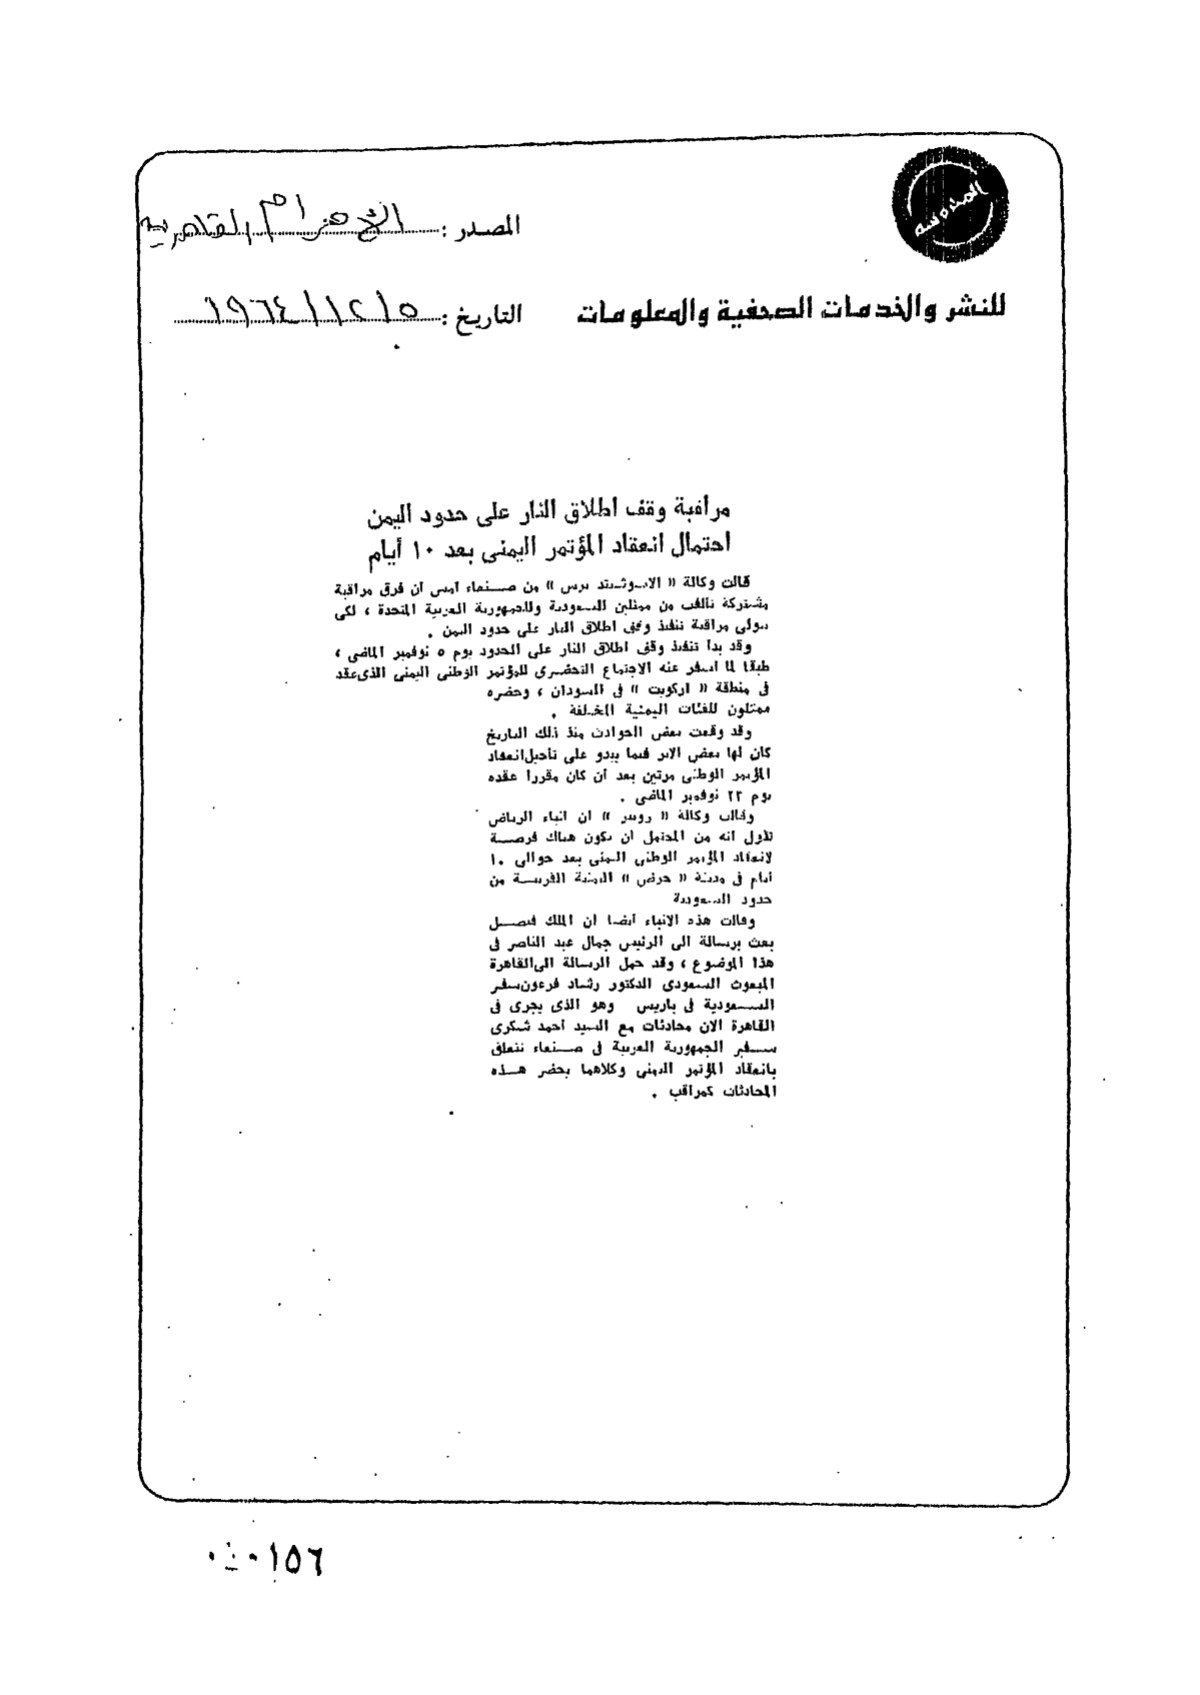 المصدر : الأهرام القاهرية
للنشر والخدمات الصحفية والمعلومات
التاريخ : ١٩٦٤/١٢/٥
مراقبة وقف اطلاق النار على حدود اليمن
احتمال انعقاد المؤتمر اليمنى بعد ١٠ أيام
قالت وكالة « الاسوشيتد برس » من صنعاء أمس أن فرق مراقبة
مشتركة تألفت من ممثلين للسعودية وللجمهورية العربية المتحدة ، لكى
تتولى مراقبة تنفيذ وقف اطلاق النار على حدود اليمن .
وقد بدأ تنفيذ وقف اطلاق النار على الحدود يوم ٥ نوفمبر الماضى ،
طبقا لما أسفر عنه الاجتماع التحضيرى للمؤتمر الوطنى اليمنى الذى عقد
فى منطقة « اركويت » فى السودان ، وحضره
ممثلون للفئات اليمنية المختلفة .
وقد وقعت بعض الحوادث منذ ذلك التاريخ
كان لها بعض الاثر فيما يبدو على تأجيل انعقاد
المؤتمر الوطنى مرتين بعد أن كان مقررا عقده
يوم ٢٣ نوفمبر الماضى .
وقالت وكالة « رويتر » ان أنباء الرياض
تقول انه من المحتمل أن تكون هناك فرصة
لانعقاد المؤتمر الوطنى اليمنى بعد حوالى ١٠
أيام فى مدينة « حرض » اليمنية القريبة من
حدود السعودية
وقالت هذه الانباء أيضا ان الملك فيصل
بعث برسالة الى الرئيس جمال عبد الناصر فى
هذا الموضوع ، وقد حمل الرسالة الى القاهرة
المبعوث السعودى الدكتور رشاد فرعون سفير
السعودية فى باريس وهو الذى يجرى فى
القاهرة الان محادثات مع السيد أحمد شكرى
سفير الجمهورية العربية فى صنعاء تتعلق
بانعقاد المؤتمر اليمنى وكلاهما يحضر هذه
المحادثات كمراقب .